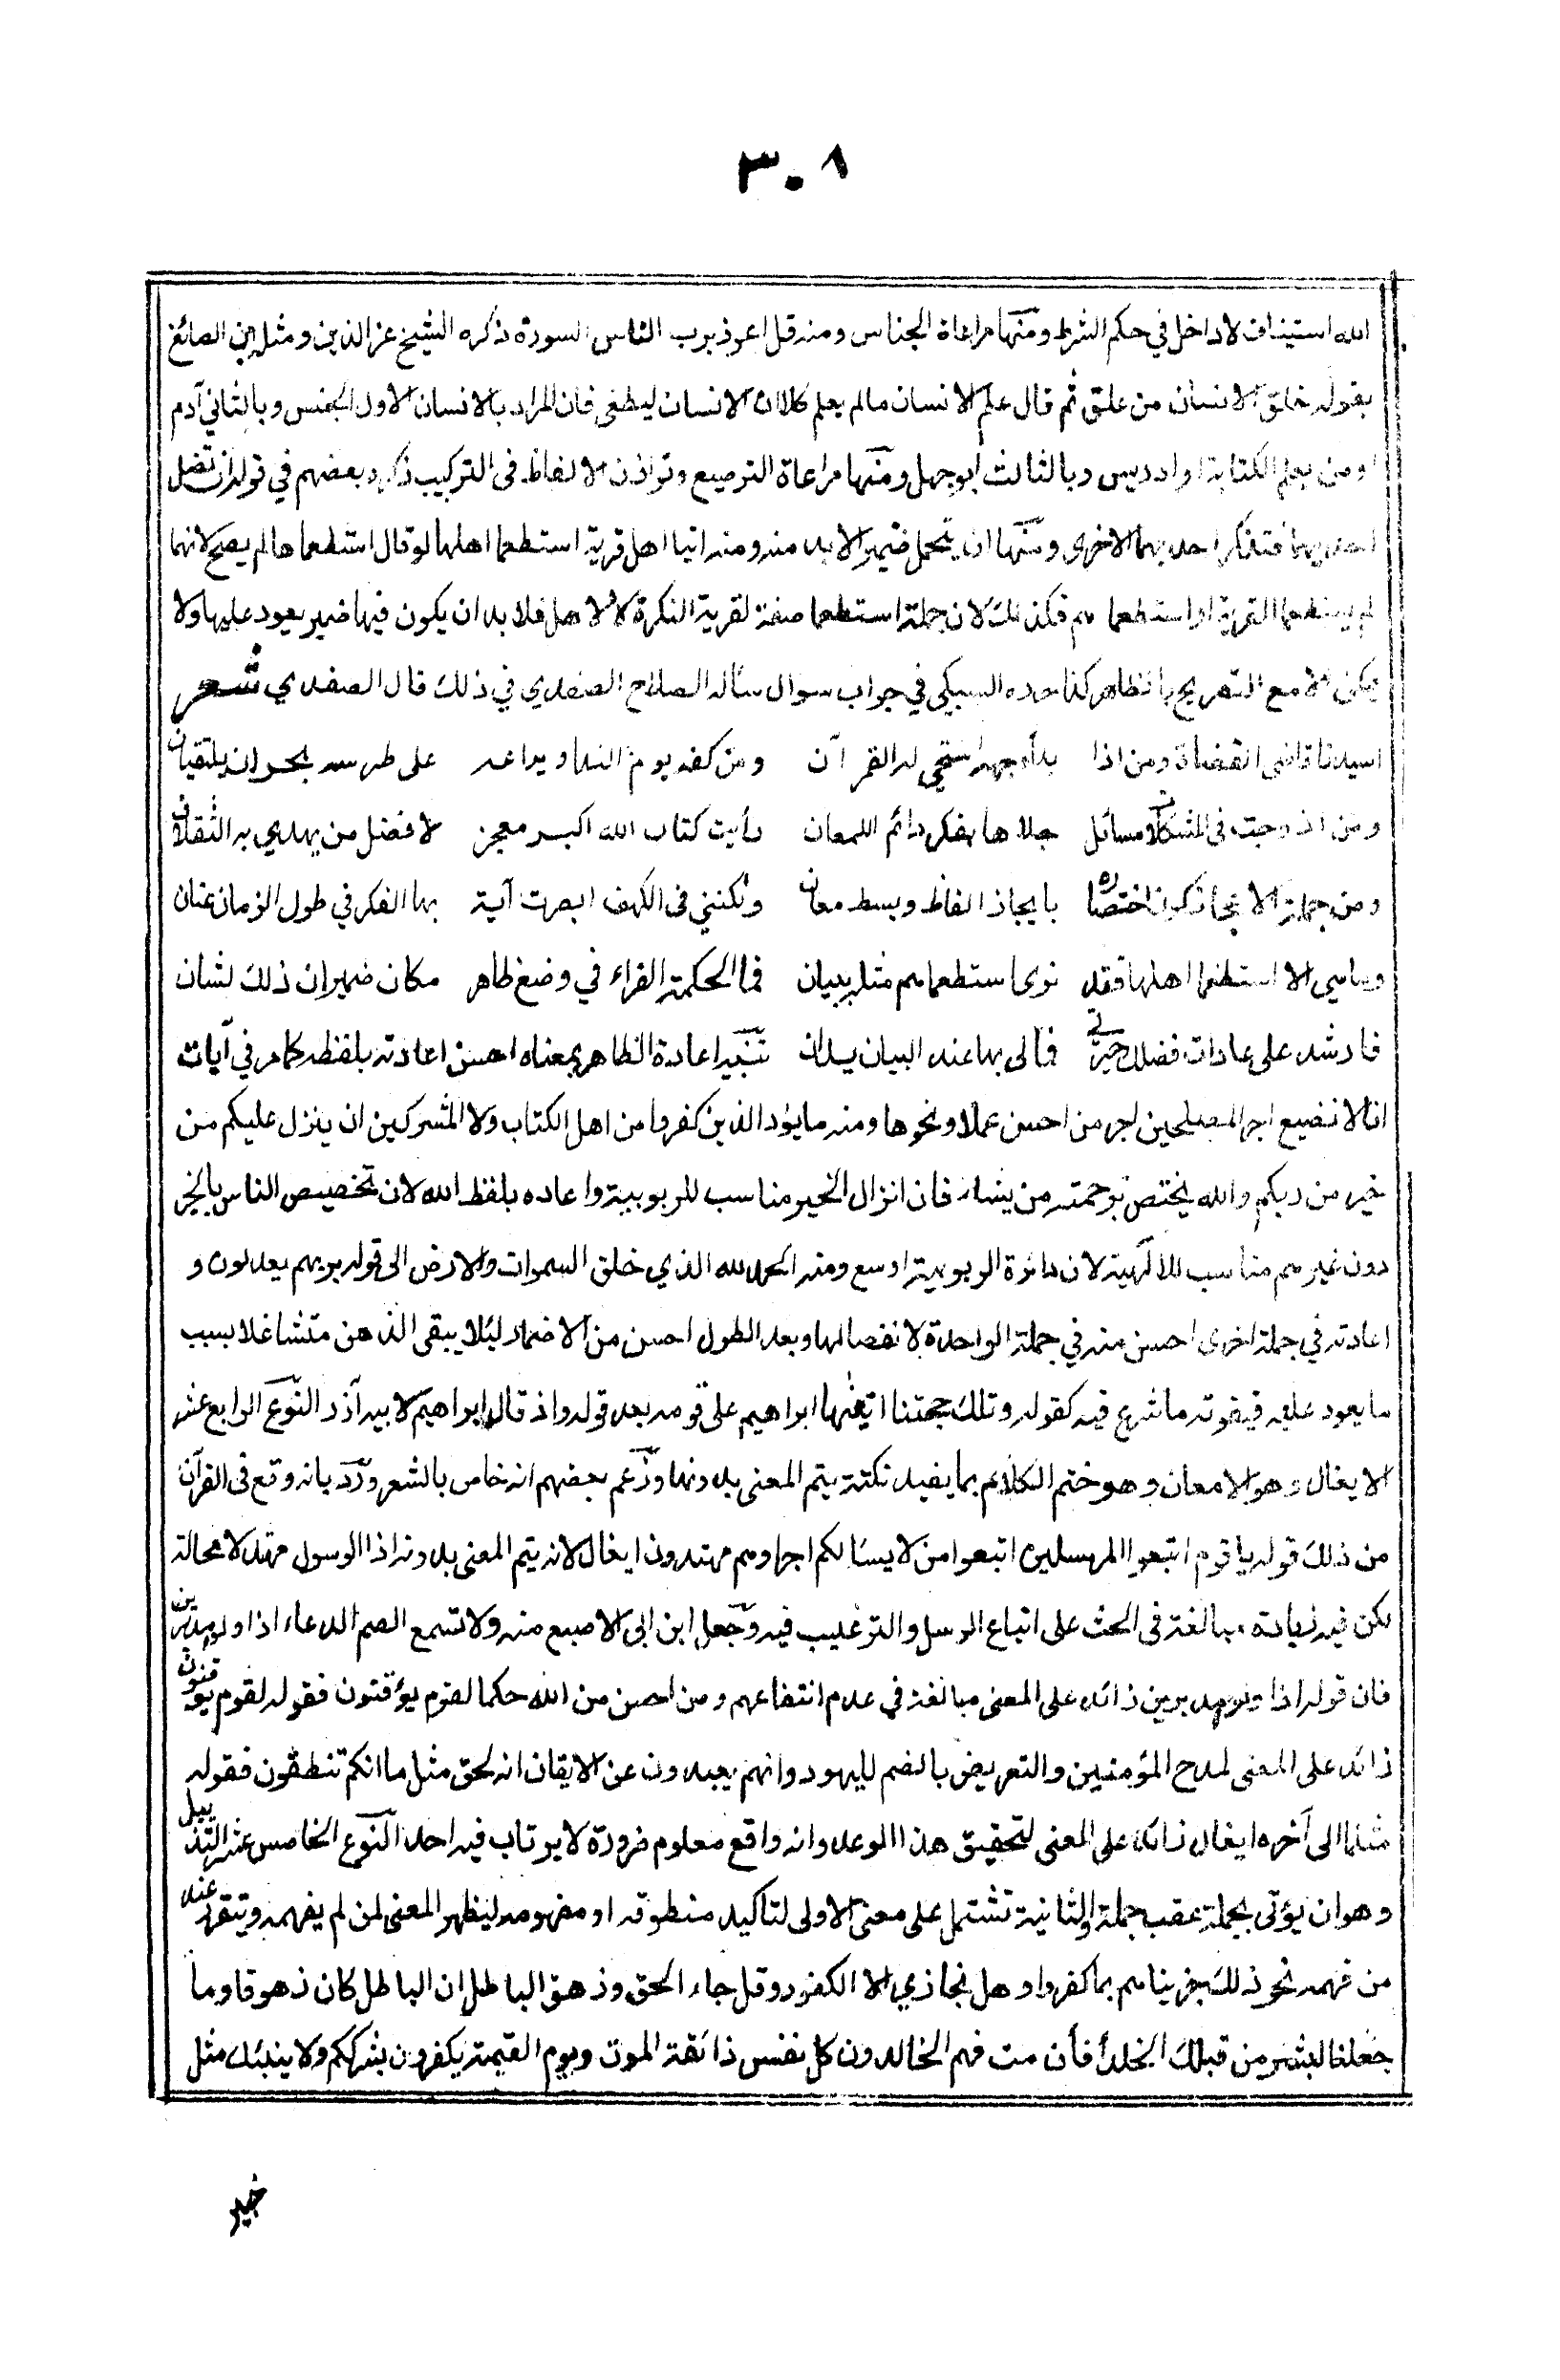 ٣٠٨
الله استيناف لا داخل في حكم الشرط ومنها مراعاة الجناس ومنه قل اعوذ برب الناس السورة ذكره الشيخ عز الدين ومثله ابن الصائغ
بقوله خلق الانسان من علق ثم قال علم الانسان ما لم يعلم كلا ان الانسان ليطغى فان المراد بالانسان الاول الجنس وبالثاني آدم
او من يعلم الكتابة او ادريس وبالثالث ابو جهل ومنها مراعاة الترصيع وتوازن الالفاظ فى التركيب ذكره بعضهم في قوله ان تضل
احديهما فتذكر احديهما الاخرى ومنها ان يتحمل ضميرا لا بد منه ومنه اتيا اهل قرية استطعما اهلها لو قال استطعماها لم يصح لانهما
لم يستطعما القرية او استطعماهم فكذلك لان جملة استطعما صفة لقرية النكرة لا لاهل فلا بد ان يكون فيها ضمير يعود عليها ولا
يمكن الا مع التصريح بالظاهر كذا حرره السبكي في جواب سوال سأله الصلاح الصفدي في ذلك قال الصفدي شعر
اسيدنا قاضى القضاة ومن اذا بدا وجهه استحيى له القمر ان ومن كفه يوم الندا ويراعه على طرسه بحران يلتقيان
ومن اذ دجت فى المشكلات مسائل جلاها بفكر دائم اللمعان رأيت كتاب الله اكبر معجز لا فضل من يهدي به الثقلان
ومن جملة الاعجاز كون اختصاره بايجاز الفاظ وبسط معان ولكنني فى الكهف ابصرت آية بها الفكر في طول الزمان عنان
وماهي الا استطعما اهلها فقد نرى استطعماهم مثله ببيان فما الحكمة الغراء في وضع ظاهر مكان ضمير ان ذلك لشان
فارشد على عادات فضلك حيرتي فمالى بها عند البيان يدان تنبيه اعادة الظاهر بمعناه احسن اعادته بلفظه كما مر في آيات
انا لا نضيع اجر المصلحين اجر من احسن عملا ونحوها ومنه ما يود الذين كفروا من اهل الكتاب ولا المشركين ان ينزل عليكم من
خير من ربكم والله يختص برحمته من يشاء فان انزال الخير مناسب للربوبية واعاده بلفظ الله لان تخصيص الناس بالخير
دون غيرهم مناسب للالهية لان دائرة الربوبية اوسع ومنه الحمد لله الذي خلق السموات والارض الى قوله بربهم يعدلون و
اعادته في جملة اخرى احسن منه في جملة الواحدة لانفصالها وبعد الطول احسن من الاضمار لئلا يبقى الذهن متشاغلا بسبب
ما يعود عليه فيفوته ما شرع فيه كقوله وتلك حجتنا اتيناها ابراهيم على قومه بعد قوله واذ قال ابراهيم لابيه آزر النوع الرابع عشر
الايغال وهو الامعان وهو ختم الكلام بما يفيد نكتة يتم المعنى بدونها وزعم بعضهم انه خاص بالشعر ورد بانه وقع فى القرآن
من ذلك قوله يا قوم اتبعوا المرسلين اتبعوا من لا يسئالكم اجرا وهم مهتدون ايغال لانه يتم المعنى بدونه اذ الرسول مهتد لا محالة
لكن فيه زيادة مبالغة فى الحث على اتباع الرسل والترغيب فيه وجعل ابن ابى الاصبع منه ولا تسمع الصم الدعاء اذا ولوا مدبرين
فان قوله اذا ولوا مدبرين زائد على المعنى مبالغة في عدم انتفاعهم ومن احسن من الله حكما لقوم يوقنون فقوله لقوم يوقنون
زائد على المعنى لمدح المؤمنين والتعريض بالضم لليهود وانهم بعيدون عن الايقان انه لحق مثل ما انكم تنطقون فقوله
مثلما الى آخره ايغال زائد على المعنى لتحقيق هذا الوعد وانه واقع معلوم ضرورة لا يرتاب فيه احد النوع الخامس عشر التذييل
وهو ان يؤتى بجملة عقب جملة والثانية تشتمل على معنى الاولى لتاكيد منطوقه او مفهومه ليظهر المعنى لمن لم يفهمه ويتقرر عند
من فهمه نحو ذلك جزيناهم بما كفروا وهل نجازي الا الكفور وقل جاء الحق وزهق الباطل ان الباطل كان زهوقا وما
جعلنا لبشر من قبلك الخلد أفأن مت فهم الخالدون كل نفس ذائقة الموت ويوم القيمة يكفرون بشرككم ولا ينبئك مثل
خبير